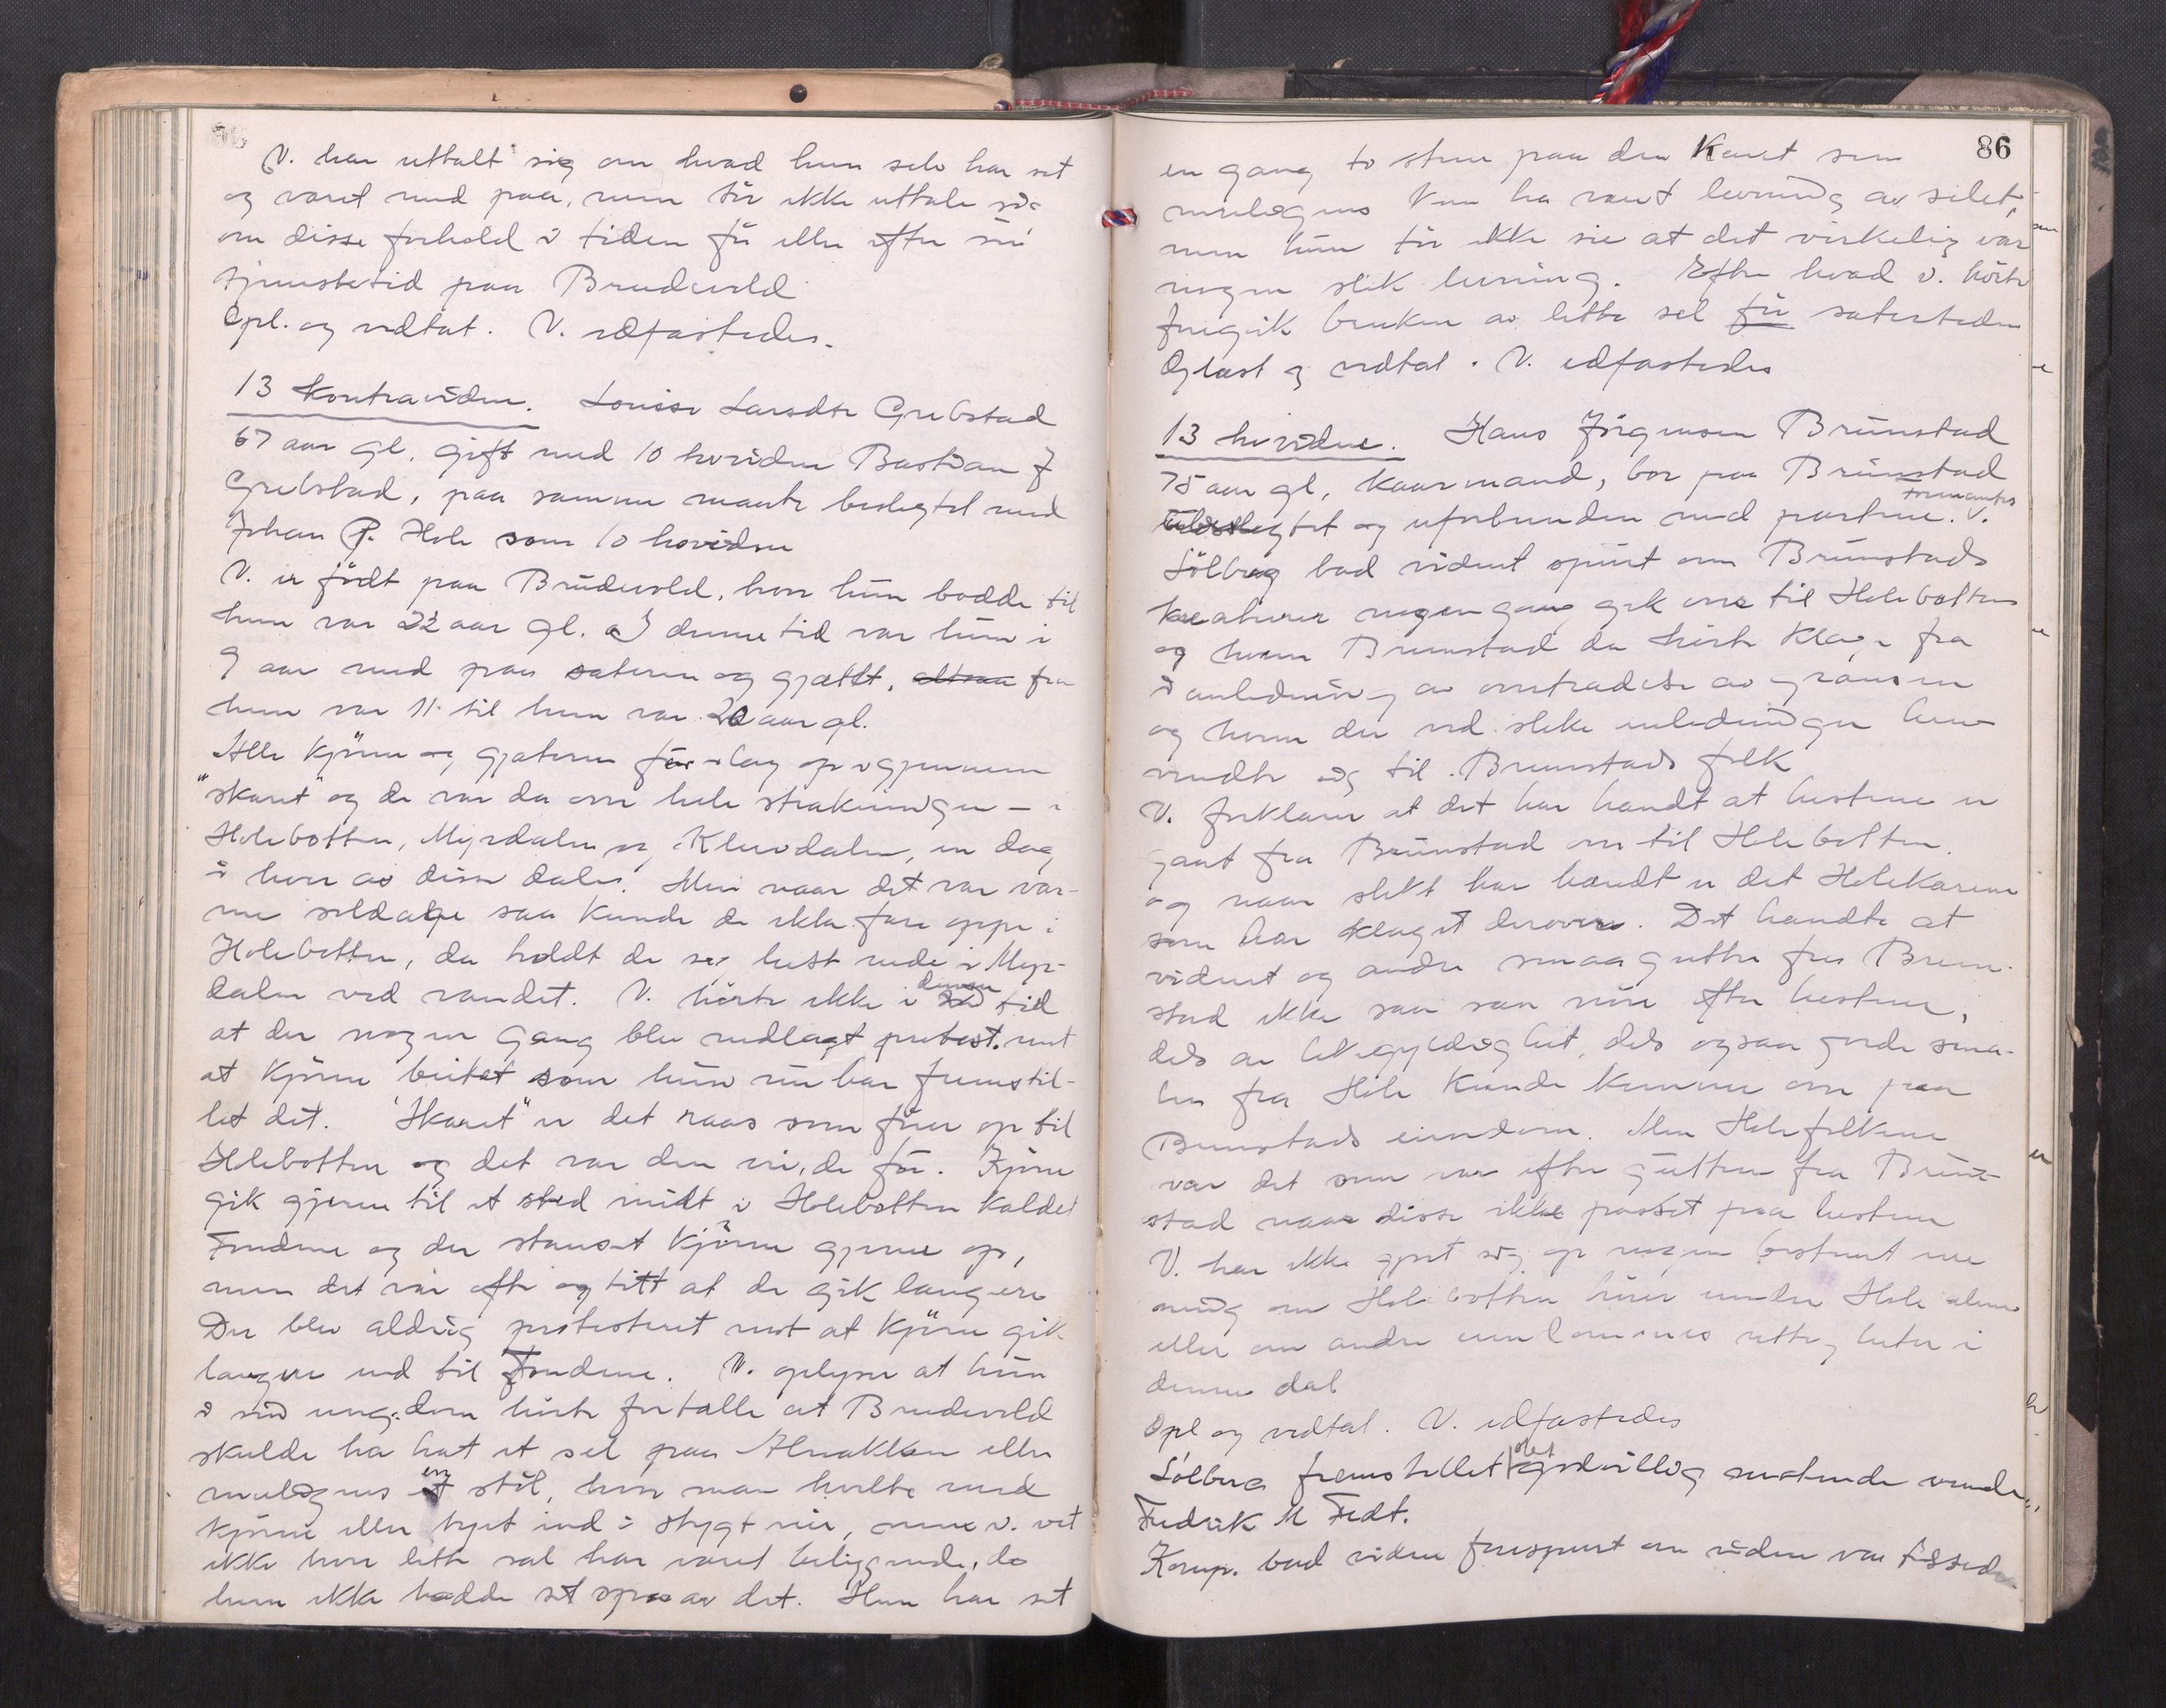 V. har uttalt sig om hvad hun selv har set
og været med paa, men tör ikke uttale sig
om disse forhold i tiden för eller efter sin
tjenestetid paa Brudevold
Opl. og vedtat. V. edfæstedes.
13 kontravidne. Louise Larsdtr Grebstad
67 aar gl. gift med 10 hovidne Bastian J
Grebstad, paa samme maate beslegtet med
Johan P. Hole som 10 hovidne
V. er födt paa Brudevold, hvor hun bodde til
hun var 22 aar gl. I denne tid var hun i
9 aar med paa sæteren og gjætet, altsaa fra
hun var 11 til hun var 20 aar gl.
Alle kjörne og gjæterne för i lag op igjennem
"skaret" og de var da over hele strækningen - i
Holebotten, Myrdalen og Kluvdalen, en dag
i hver av disse daler. Men naar det var var-
me soldage saa kunde de ikke fare oppe i
Holebotten, da holdt de sig helst nede i Myr-
dalen ved vandet. V. hörte ikke i denne tid
at der nogen gang blev nedlagt protest mot
at kjörne beitet som hun nu har fremstil-
let det. "Skaret" er det raas som förer op til
Holebotten og det var den vei, de för. Kjörne
gik gjerne til et sted midt i Holebotten kaldet
Fondene og der stanset kjörne gjerne op,
men det var ofte og titt at de gik længere
Der blev aldrig protestert mot at kjörne gik
længere ind til Fondene. V. oplyser at hun
i sin ungdom hörte fortælle at Brudevold
skulde ha hat et sel paa Alnakken eller
muligens en stöl, hvor man hvilte med
kjörne eller tyet ind i stygt veir, men v. vet
ikke hvor dette sel har været beliggende, da
hun ikke hadde set spor av det. Hun har set
86
en gang to stene paa den kant som
muligens kan ha været levning av selet,
men hun tör ikke sie at det virkelig var
nogen slik levning. Efter hvad v. hörte
foregik bruken av dette sel för sæterstaden
Oplæst og vedtat. V. edfæstedes
13 hovidne. Hans Jörgensen Brunstad
75 aar gl, kaarmand, bor paa Brunstad
ubeslegtet og uforbunden med partene. V. formantes
Sölberg bad vidnet spurt om Brunstads
kreaturer nogen gang gik over til Holebotten
og hvem Brunstad da hörte klage fra
i anledning av overtrædelse av grænsen
og hvem der ved slike anledninger hen-
vendte sig til Brunstads folk
V. forklarer at det har hændt at hestene er
gaat fra Brunstad over til Holebotten
og naar slikt har hændt er det Holekarene
som har klaget derover. Det hændte at
vidnet og andre smaagutter fra Brun-
stad ikke saa saa nöie efter hestene,
dels av likegyldighet, dels ogsaa fordi sma-
len fra Hole kunde komme over paa
Brunstads eiendom. Men Holefolkene
var det som var efter guttene fra Brun-
stad naar disse ikke passet paa hestene
V. har ikke gjort sig op nogen bestemt me
ning om Holebotten hörer under Hole alene
eller om andre
denne dal
Opl og vedtat. V. edfæstedes
Sölberg fremstillet godvillig møtende vidne
Fredrik M Fedt.
Komp. bad vidnet forespurt om vidnet var tilstede